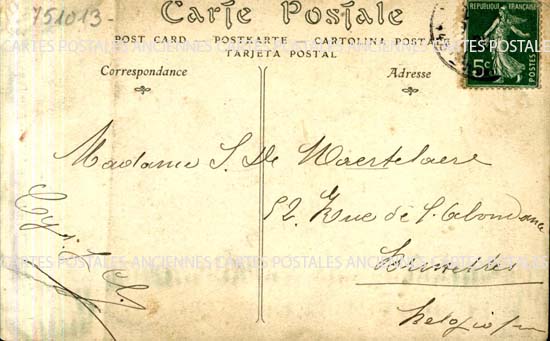 751013-
Carte Postale
POST CARD - POSTKARTE - CARTOLINA POSTALE
TARJETA POSTAL
REPUBLIQUE FRANÇAISE
5c
POSTES
CARTES POSTALES ANCIENNES CARTES POSTALES ANCIENNES CARTES POSTALES
Correspondance
Adresse
Madame S. De Waertelaere
52. Rue de l'Abondance
CARTES POSTALES ANCIENNES CARTES POSTALES ANCIENNES CARTES POSTALES
Bruxelles
Belgique